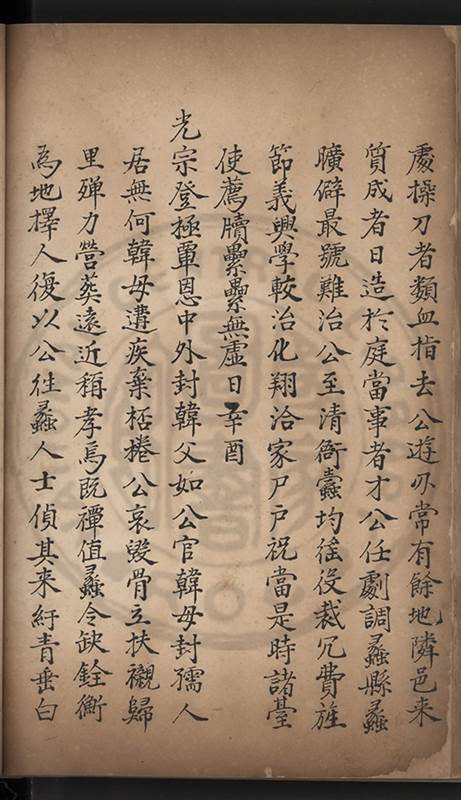 處操刀者類血指去公遊刃常有餘地隣邑来
質成者日造於庭當事者才公任劇調蠡縣蠡
曠僻最號難治公至清衙蠹均徭役裁冗費旌
節義興學較治化翔洽家尸户祝當是時諸臺
使薦牘纍纍無虛日辛酉
光宗登極覃恩中外封韓父如公官韓母封孺人
居無何韓母遘疾棄栝捲公哀毀骨立扶櫬歸
里殫力營葬遠近稱孝焉既禫值蠡令缺銓衡
為地擇人復以公往蠡人士偵其来紆青垂白